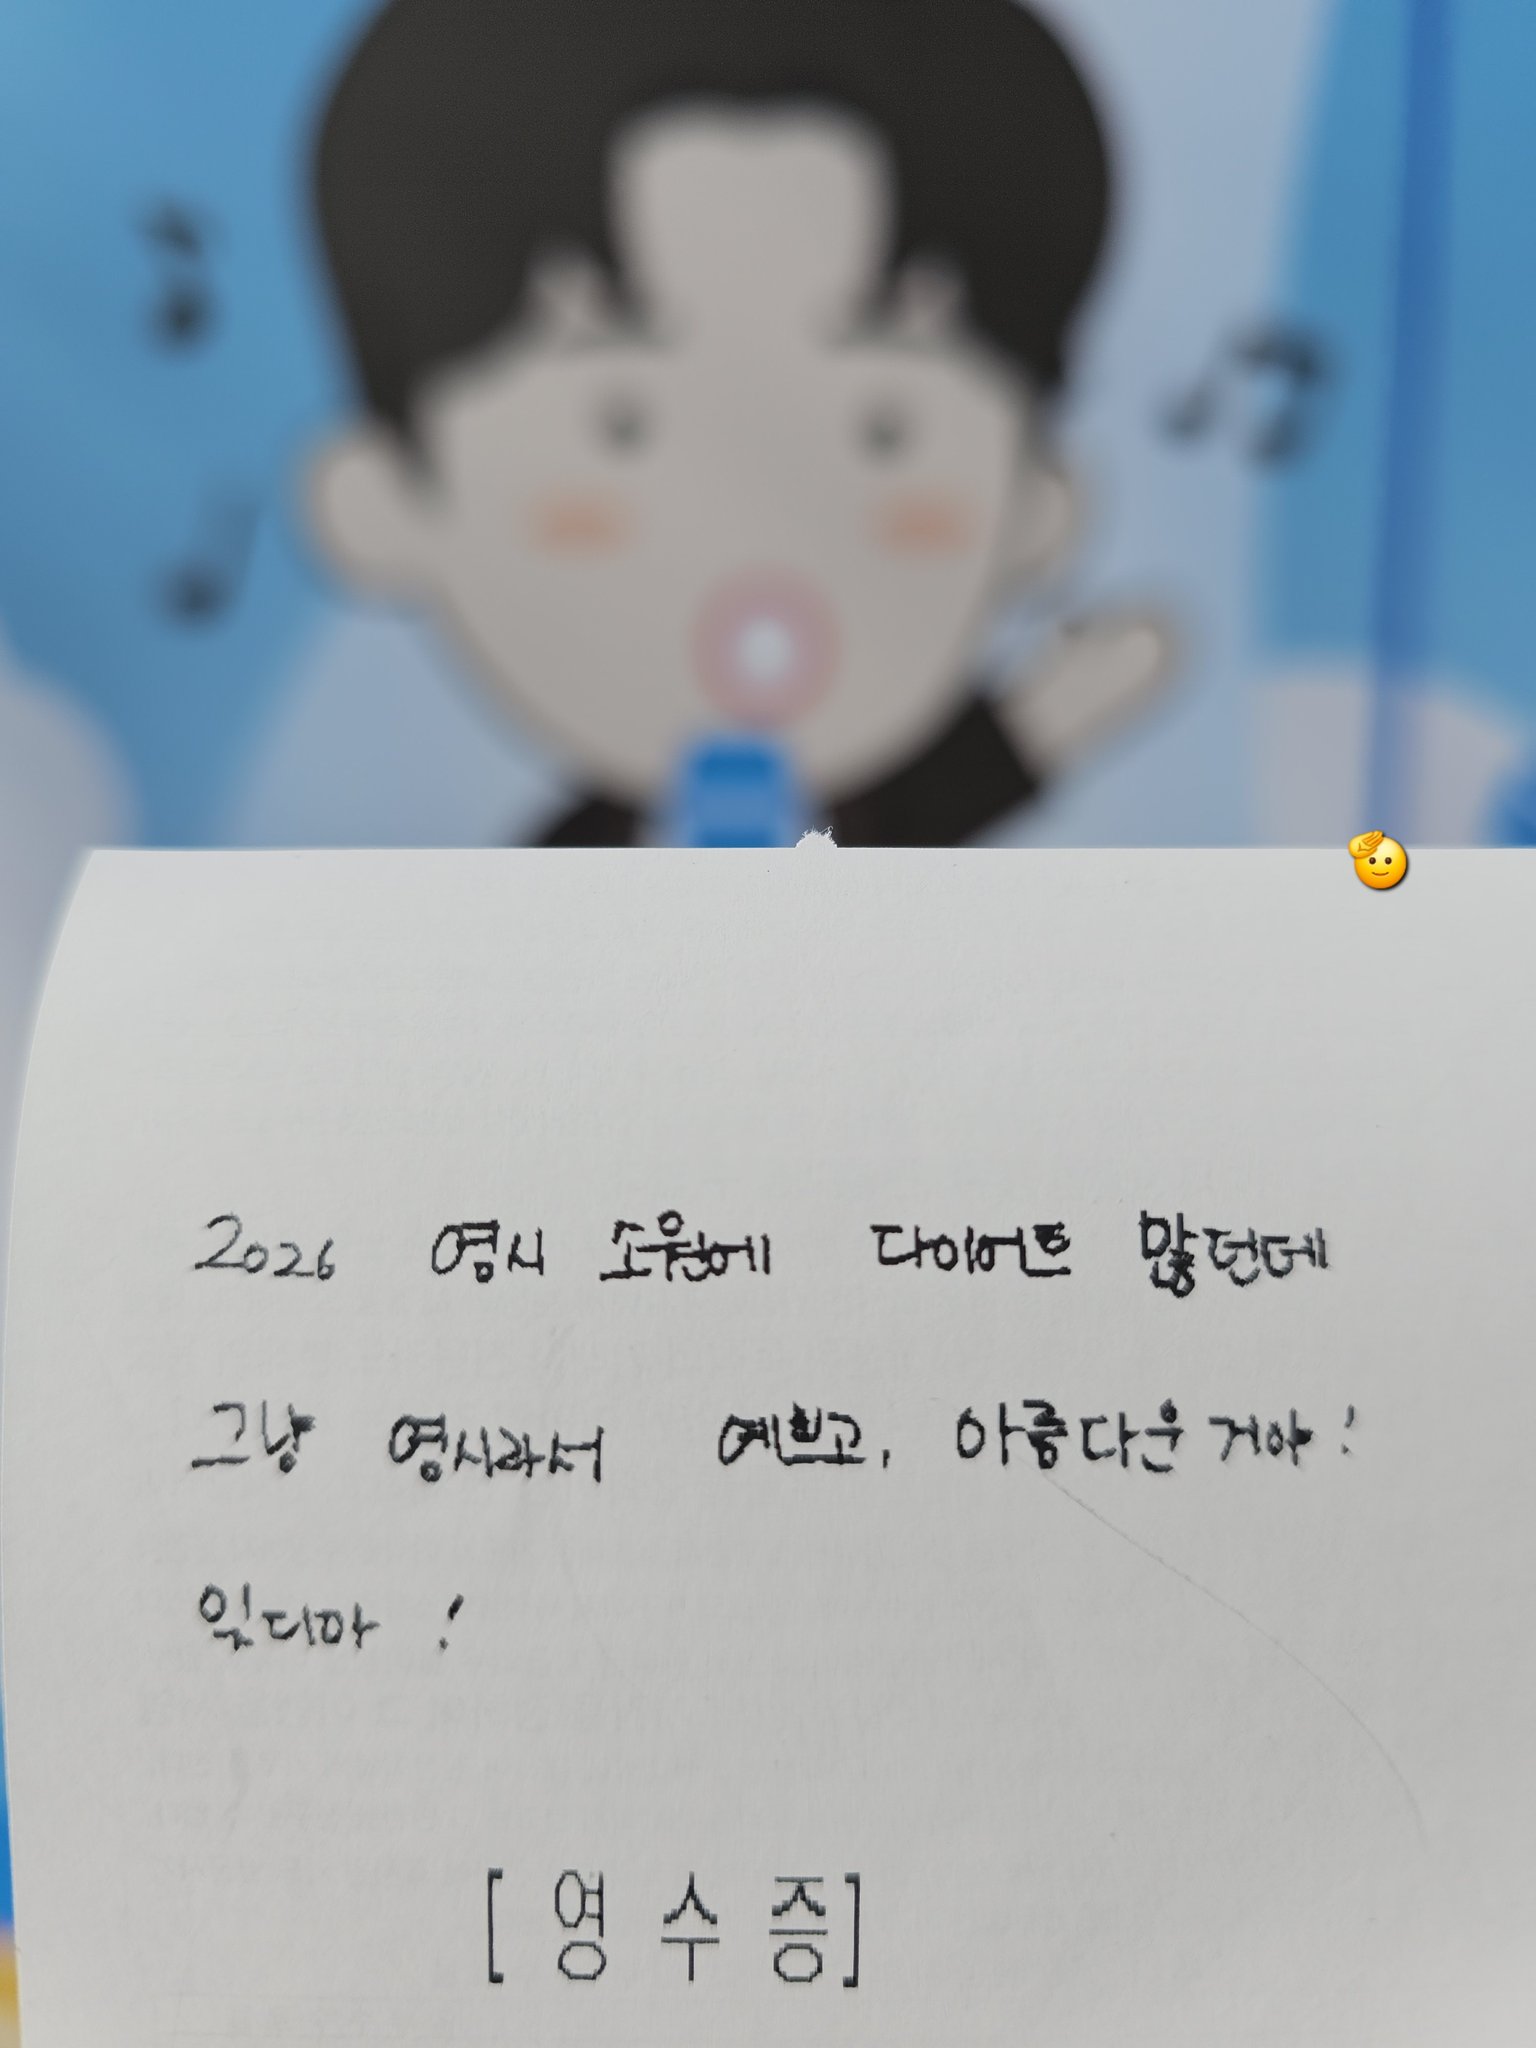 2026 영시 소원에 다이어트 많던데
그냥 영시라서 예쁘고, 아름다운 거야!
잊디마 !
[ 영 수 증 ]